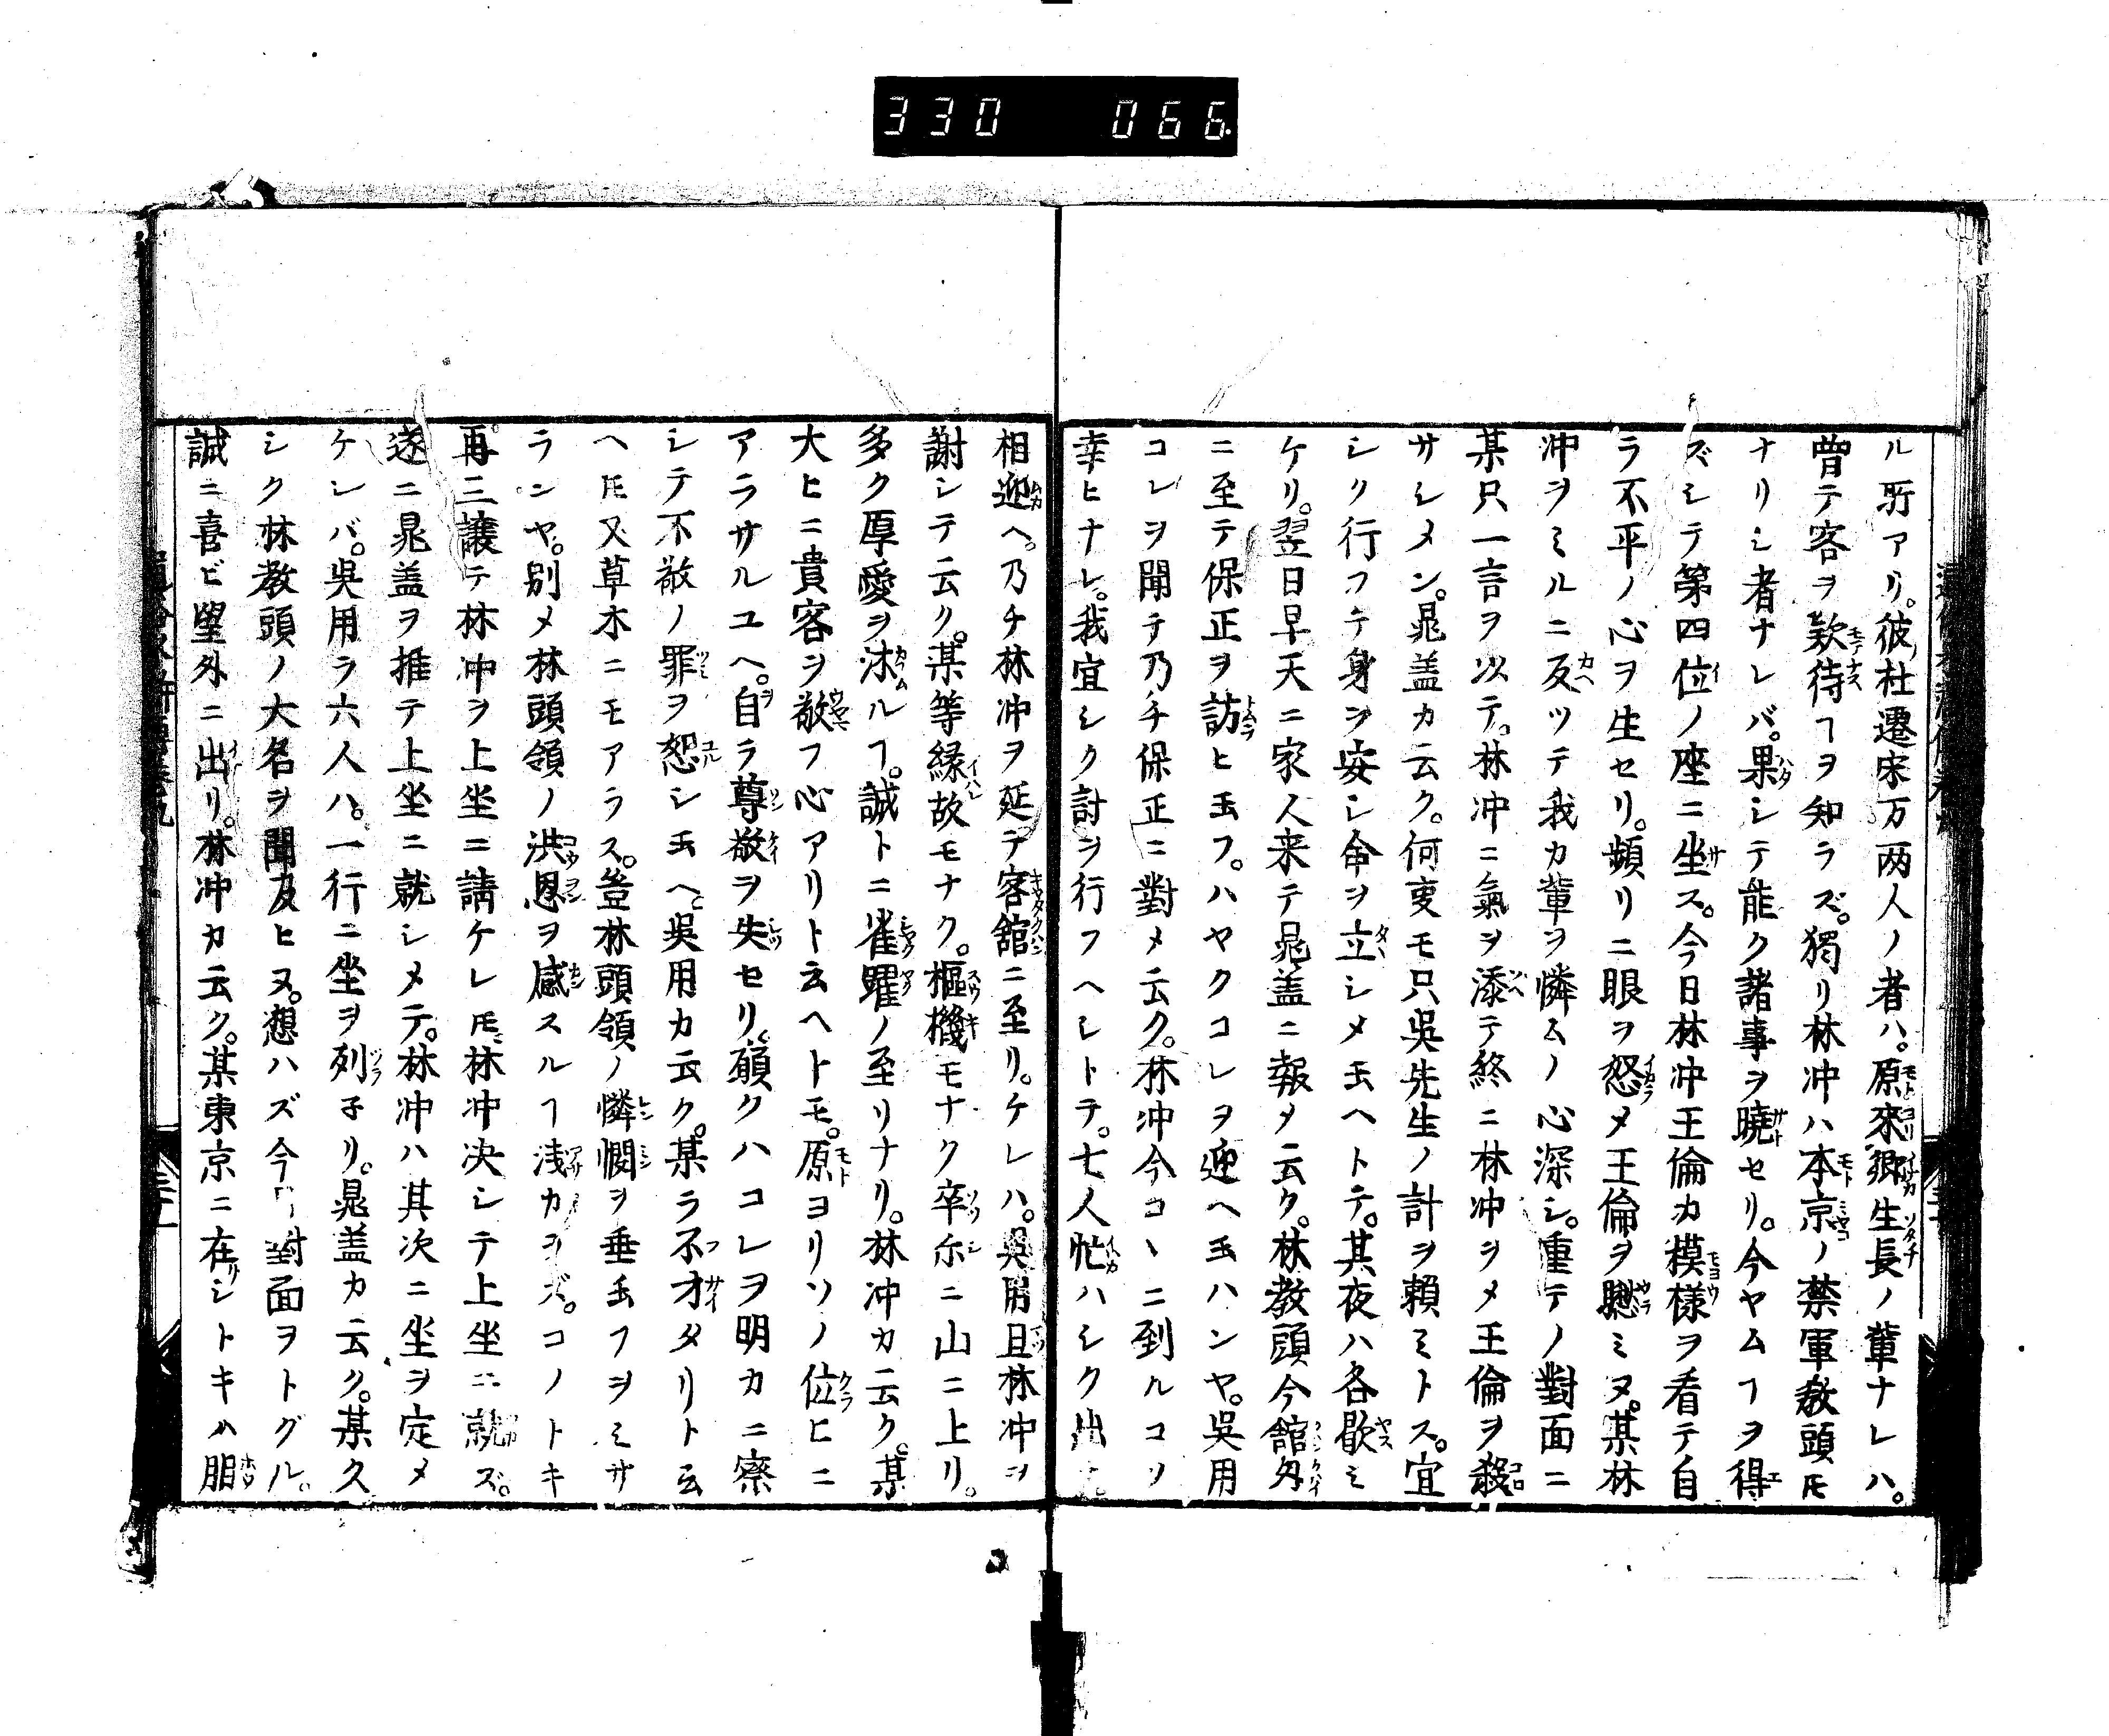 330 066
ル所アリ。彼杜遷宋万両人ノ者ハ。原来郷生長ノ輩ナレハ。
曽テ客ヲ欵待ヿヲ知ラズ。獨リ林冲ハ本京ノ禁軍教頭𪜈
ナリシ者ナレバ。果シテ能ク諸事ヲ曉セリ。今ヤムヿヲ得
ズシテ第四位ノ座ニ坐ス。今日林冲王倫カ模様ヲ看テ自
ラ不平ノ心ヲ生セリ。頻リニ眼ヲ怒メ王倫ヲ愬ミヌ。某林
冲ヲミルニ反ツテ我カ輩ヲ憐ムノ心深シ。重テノ對面ニ
某只一言ヲ以テ。林冲ニ氣ヲ添テ終ニ林冲ヲメ王倫ヲ殺
サシメン。晁盖カ云ク。何叓モ只吳先生ノ計ヲ頼ミトス。宜
シク行フテ身ヲ安シ命ヲ立シメ玉ヘトテ。其夜ハ各歇ミ
ケリ。翌日早天ニ家人来テ晁盖ニ報メ云ク。林教頭今舘外
ニ至テ保正ヲ訪ヒ玉フ。ハヤクコレヲ迎ヘ玉ハンヤ。吳用
コレヲ聞テ乃チ保正ニ對メ云ク。林冲今コヽニ到ルコソ
幸ヒナレ。我宜シク計ヲ行フヘシトテ。七人忙ハシク出テ
相迎ヘ。乃チ林冲ヲ延テ客舘ニ至リ。ケレハ。吳用且林冲ヲ
謝シテ云ク。某等縁故モナク。樞機モナク卒尓ニ山ニ上リ。
多ク厚愛ヲ沐ルヿ。誠トニ雀躍ノ至リナリ。林冲カ云ク。某
大ヒニ貴客ヲ敬フ心アリト云ヘトモ。原ヨリソノ位ヒニ
アラサルユヘ。自ラ尊敬ヲ失セリ。願クハコレヲ明カニ察
シテ不敬ノ罪ヲ恕シ玉ヘ。吳用カ云ク。某ラ不才タリト云
ヘ𪜈又草木ニモアラス。豈林頭領ノ憐憫ヲ垂玉フヲミサ
ランヤ。別メ林頭領ノ洪恩ヲ感スルヿ浅カラズ。コノトキ
再三讓テ林冲ヲ上坐ニ請ケレ𪜈。林冲决シテ上坐ニ就ズ。
遂ニ晁盖ヲ推テ上坐ニ就シメテ。林冲ハ其次ニ坐ヲ定メ
ケレバ。吳用ラ六人ハ。一行ニ坐ヲ列子リ。晁盖カ云ク。某久
シク林教頭ノ大名ヲ聞及ヒヌ。想ハズ今日對面ヲトグル。
誠ニ喜ビ望外ニ出リ。林冲カ云ク。某東京ニ在シトキハ朋